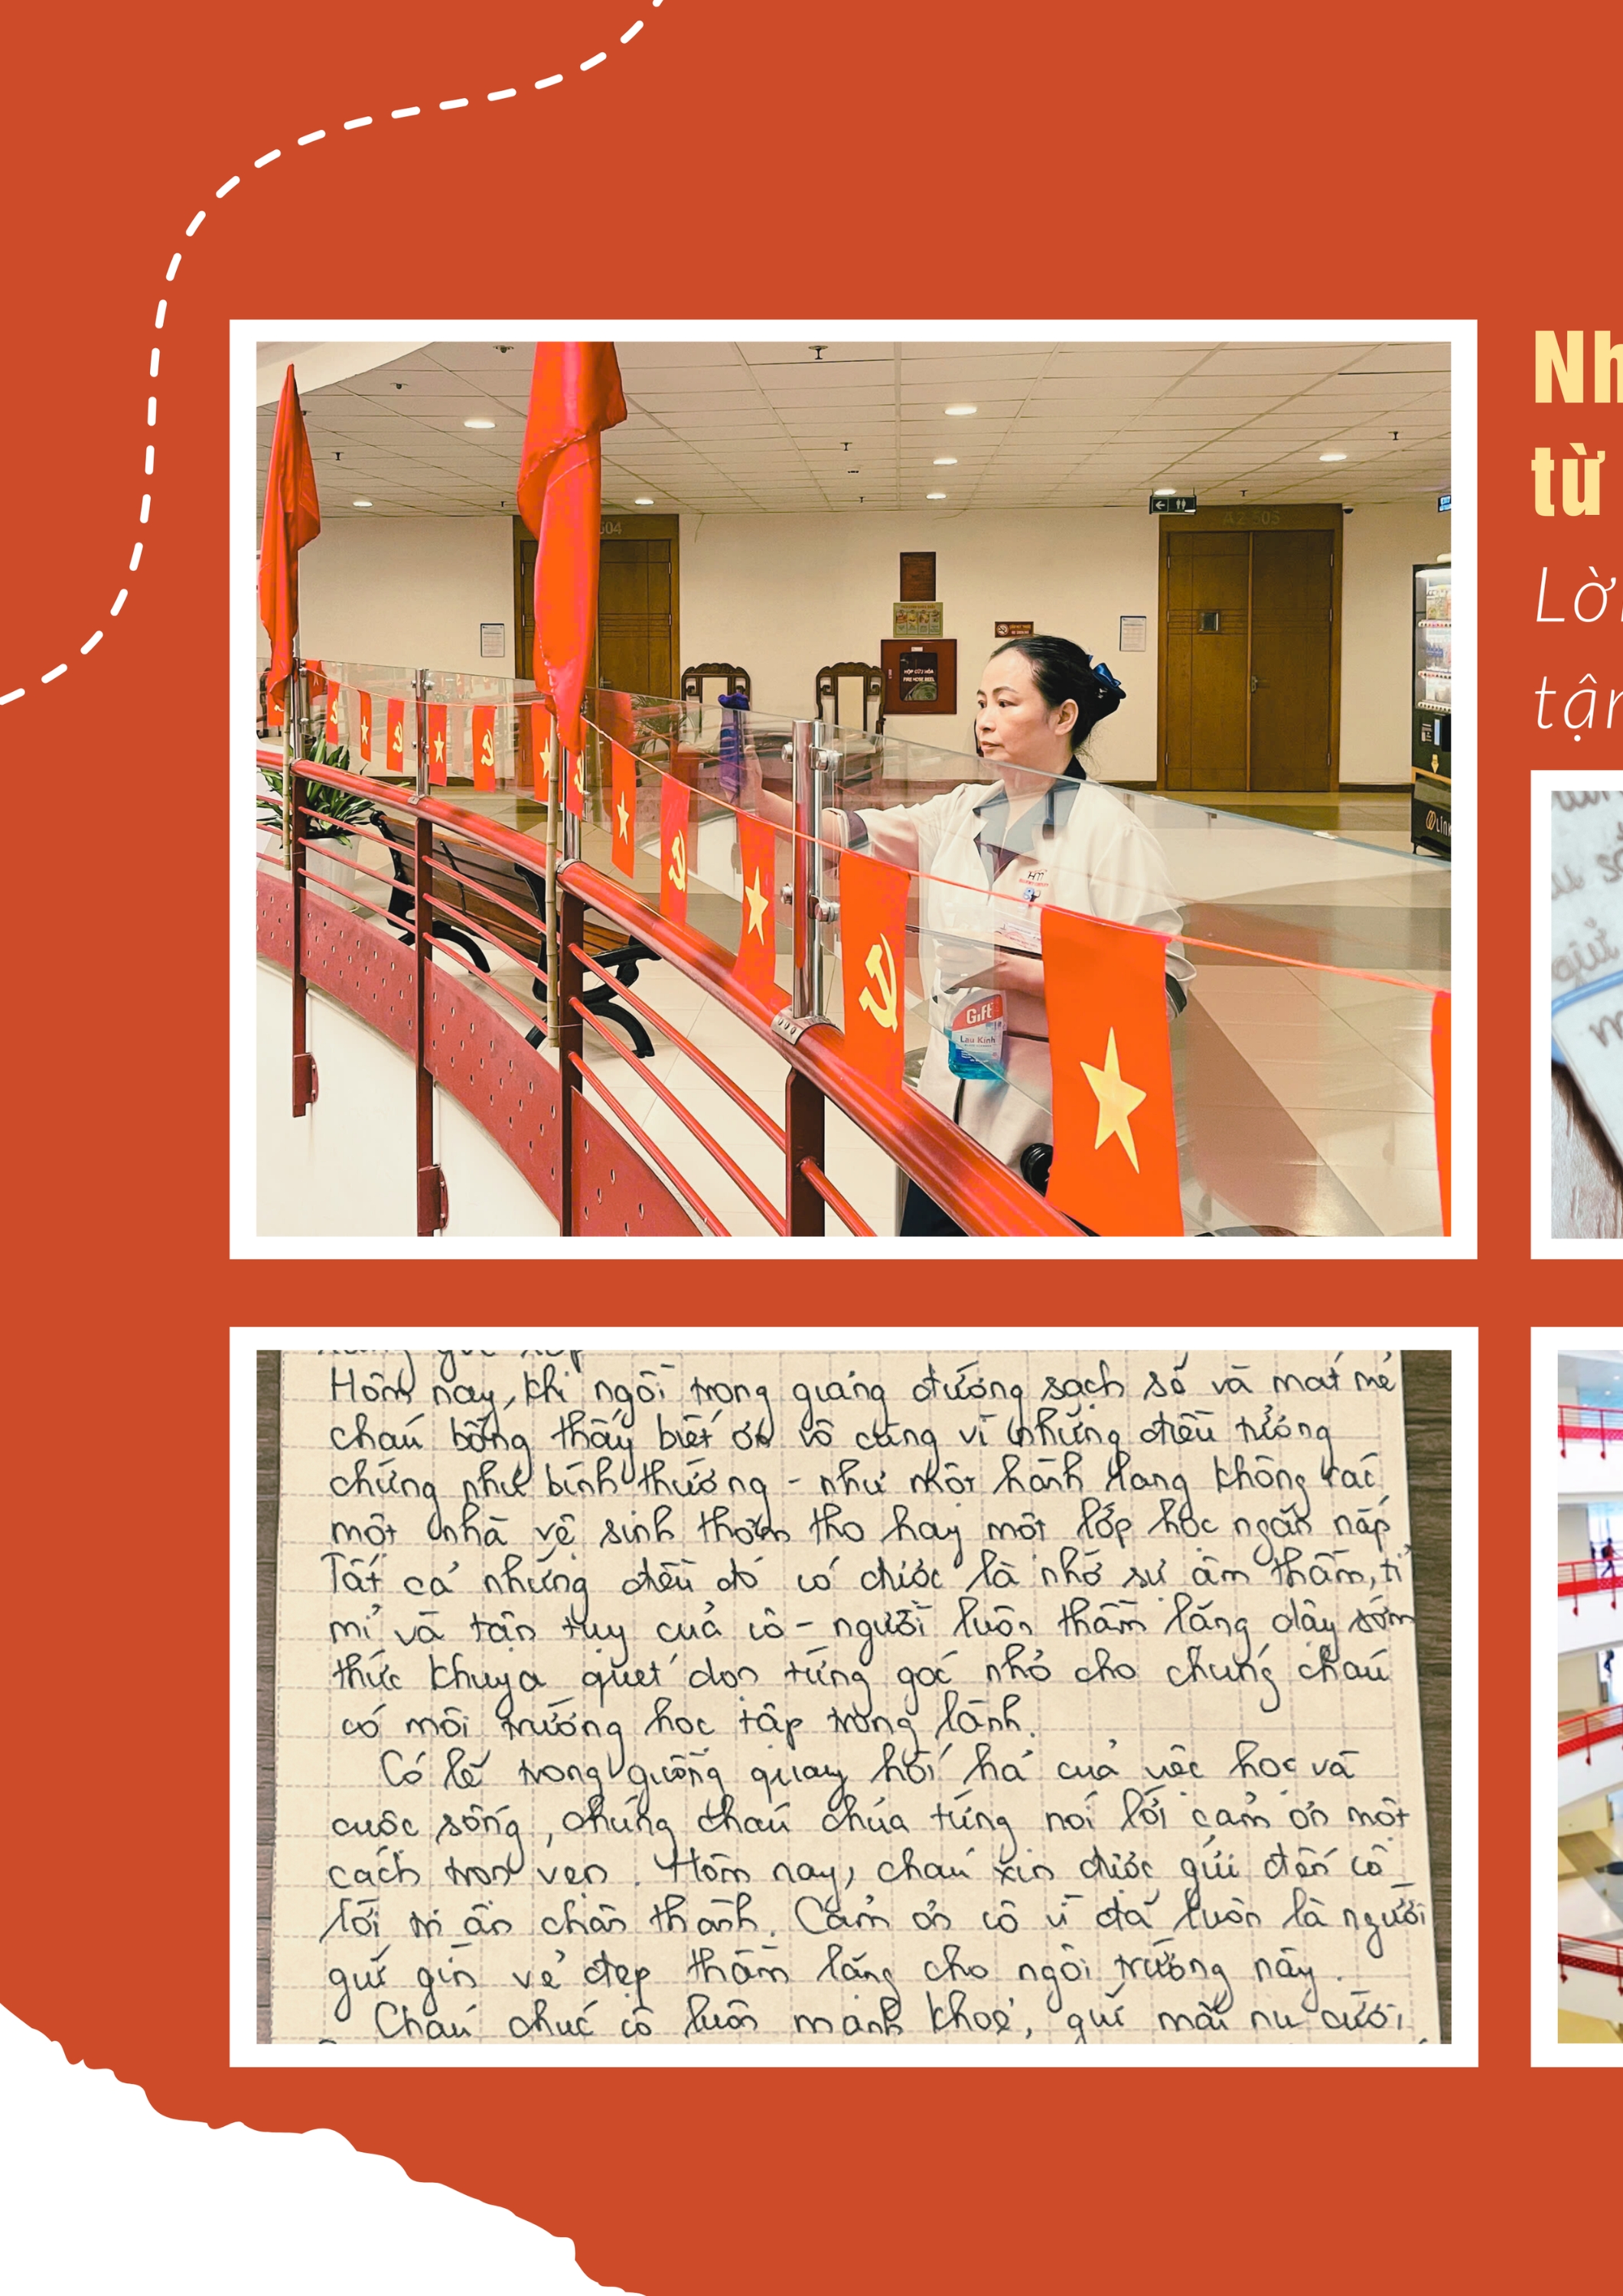 504
A2-505
HỘP CỨU HỎA
FIRE HOSE REEL
HTI
Gift
Lau Kính
Nh
từ
Lờ
tận
Hôm nay, khi ngồi trong giảng đường sạch sẽ và mát mẻ
cháu bỗng thấy biết ơn vô cùng vì những điều tưởng
chừng như bình thường - như một hành lang không rác
một nhà vệ sinh thơm tho hay một lớp học ngăn nắp
Tất cả những điều đó có được là nhờ sự âm thầm, tỉ
mỉ và tận tụy của cô - người luôn thầm lặng dậy sớm
thức khuya quét dọn từng góc nhỏ cho chúng cháu
có môi trường học tập trong lành.
Có lẽ trong guồng quay hối hả của việc học và
cuộc sống, chúng cháu chưa từng nói lời cảm ơn một
cách trọn vẹn. Hôm nay, cháu xin được gửi đến cô
lời tri ân chân thành. Cảm ơn cô vì đã luôn là người
giữ gìn vẻ đẹp thầm lặng cho ngôi trường này.
Cháu chúc cô luôn mạnh khoẻ, giữ mãi nụ cười,